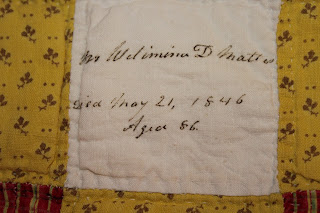 Mr Welimina D
Died May 21, 1846
Aged 86.